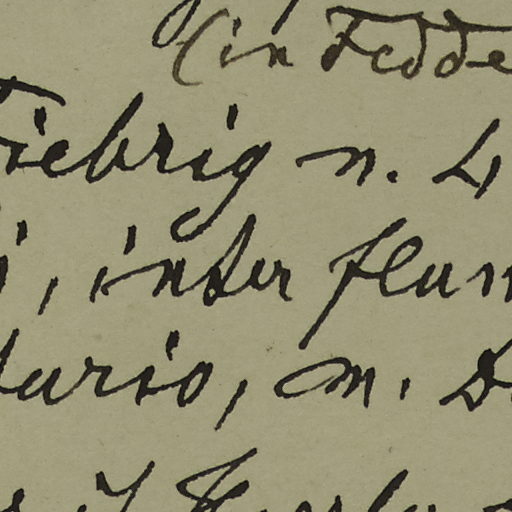 (in Fedde
Fiebrig n. 4
i, inter flum
dario, m. D